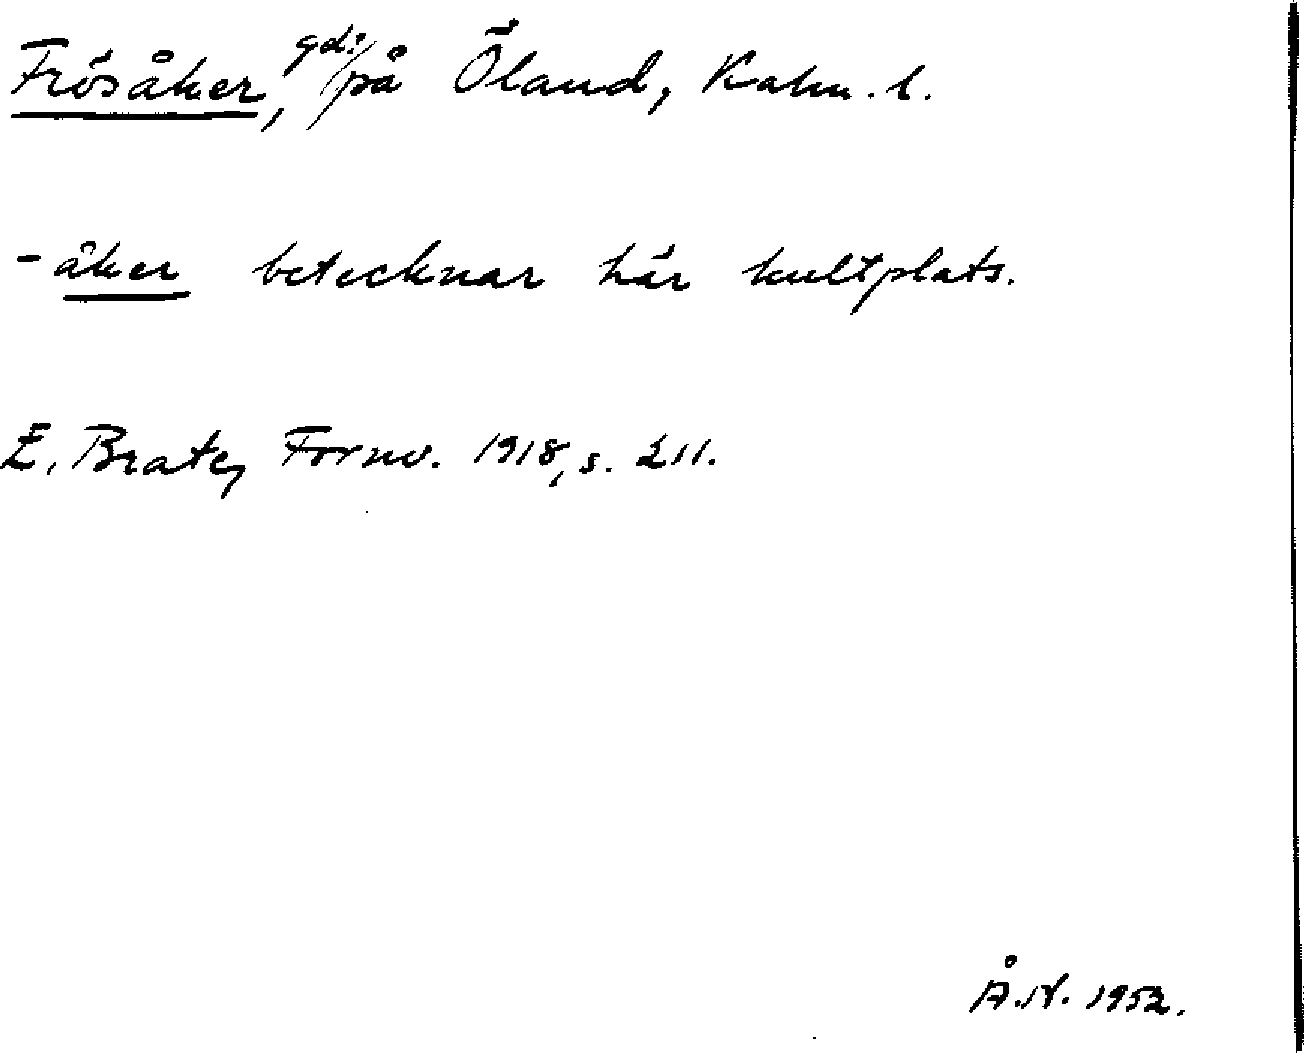 Frösåker, gd? på Öland, Kalm. l.
-åker betecknar här kultplats.
E. Brate, Fornv. 1918, s. 211.
Å.N. 1952.